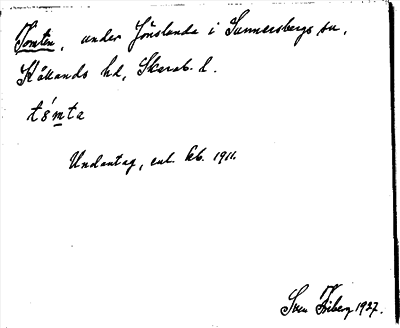 Tomten, under Jönslunda i Sunnersbergs sn,
Kållands hd, Skarab. l.
tómta
Undantag, enl. kb. 1911.
Sven Friberg 1927.